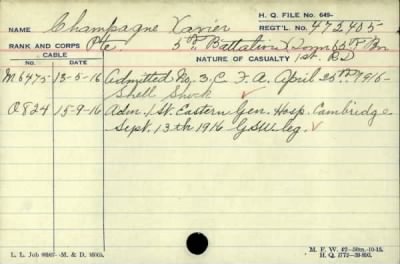 NAME Champagne Xavier H. Q. FILE No. 649-
REGT'L. No. 472405
RANK AND CORPS Pte. 5th Battalion
CABLE NATURE OF CASUALTY 1st.
No. DATE
M6475 13-5-16 Admitted No. 3. C. F. A. April 25th 1916
Shell Shock
O824 15-9-16 Adm. 1st. Eastern Gen. Hosp. Cambridge
Sept. 13th 1916 GSW leg.
L. L. Job —M. & D.
M. F. W. 42—50m.-10-15.
H. Q. 1772-39-893.